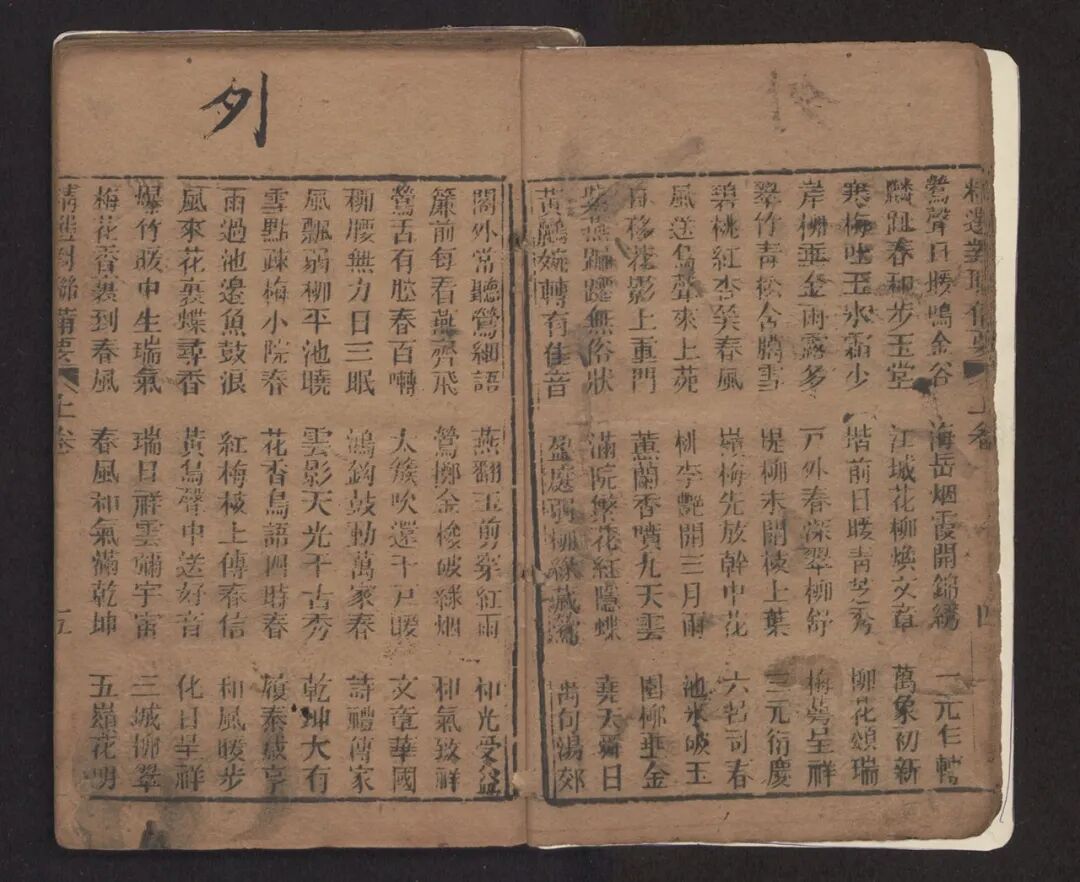 精選對聯備要 上卷 四
鶯聲日暖鳴金谷 海岳烟霞開錦綉 一元仁轉
麟趾春和步玉堂 江城花柳煥文章 萬象初新
寒梅吐玉氷霜少 堦前日暖青芝秀 柳花頌瑞
岸柳垂金雨露多 戶外春深翠柳舒 梅萼呈祥
翠竹青松含臈雪 堤柳未開枝上葉 三元衍慶
碧桃紅杏笑春風 嶺梅先放幹中花 六呂司春
風送鳥聲來上苑 桃李艷開三月雨 池氷破玉
日移花影上重門 蕙蘭香噴九天雲 園柳垂金
紫燕蹁躚無俗狀 滿院繁花紅隱蝶 堯天舜日
黃鸝婉轉有佳音 盈庭弱柳綠藏鶯 禹甸湯郊
列
閣外常聽鶯細語 燕翻玉剪穿紅雨 和光受益
簾前每看燕齊飛 鶯擲金梭破綠烟 和氣致祥
鶯舌有腔春百囀 太簇吹還千戶暖 文章華國
柳腰無力日三眠 鴻鈞鼓動萬家春 詩禮傳家
風飄弱柳平池曉 雲影天光千古秀 乾坤大有
雪點疎梅小院春 花香鳥語四時春 履泰咸亨
雨過池邊魚鼓浪 紅梅枝上傳春信 和風暖步
風來花裏蝶尋香 黃鳥聲中送好音 化日呈祥
爆竹暖中生瑞氣 瑞日祥雲彌宇宙 三城柳翠
梅花香裏到春風 春風和氣滿乾坤 五嶺花明
精選對聯備要 上卷 五